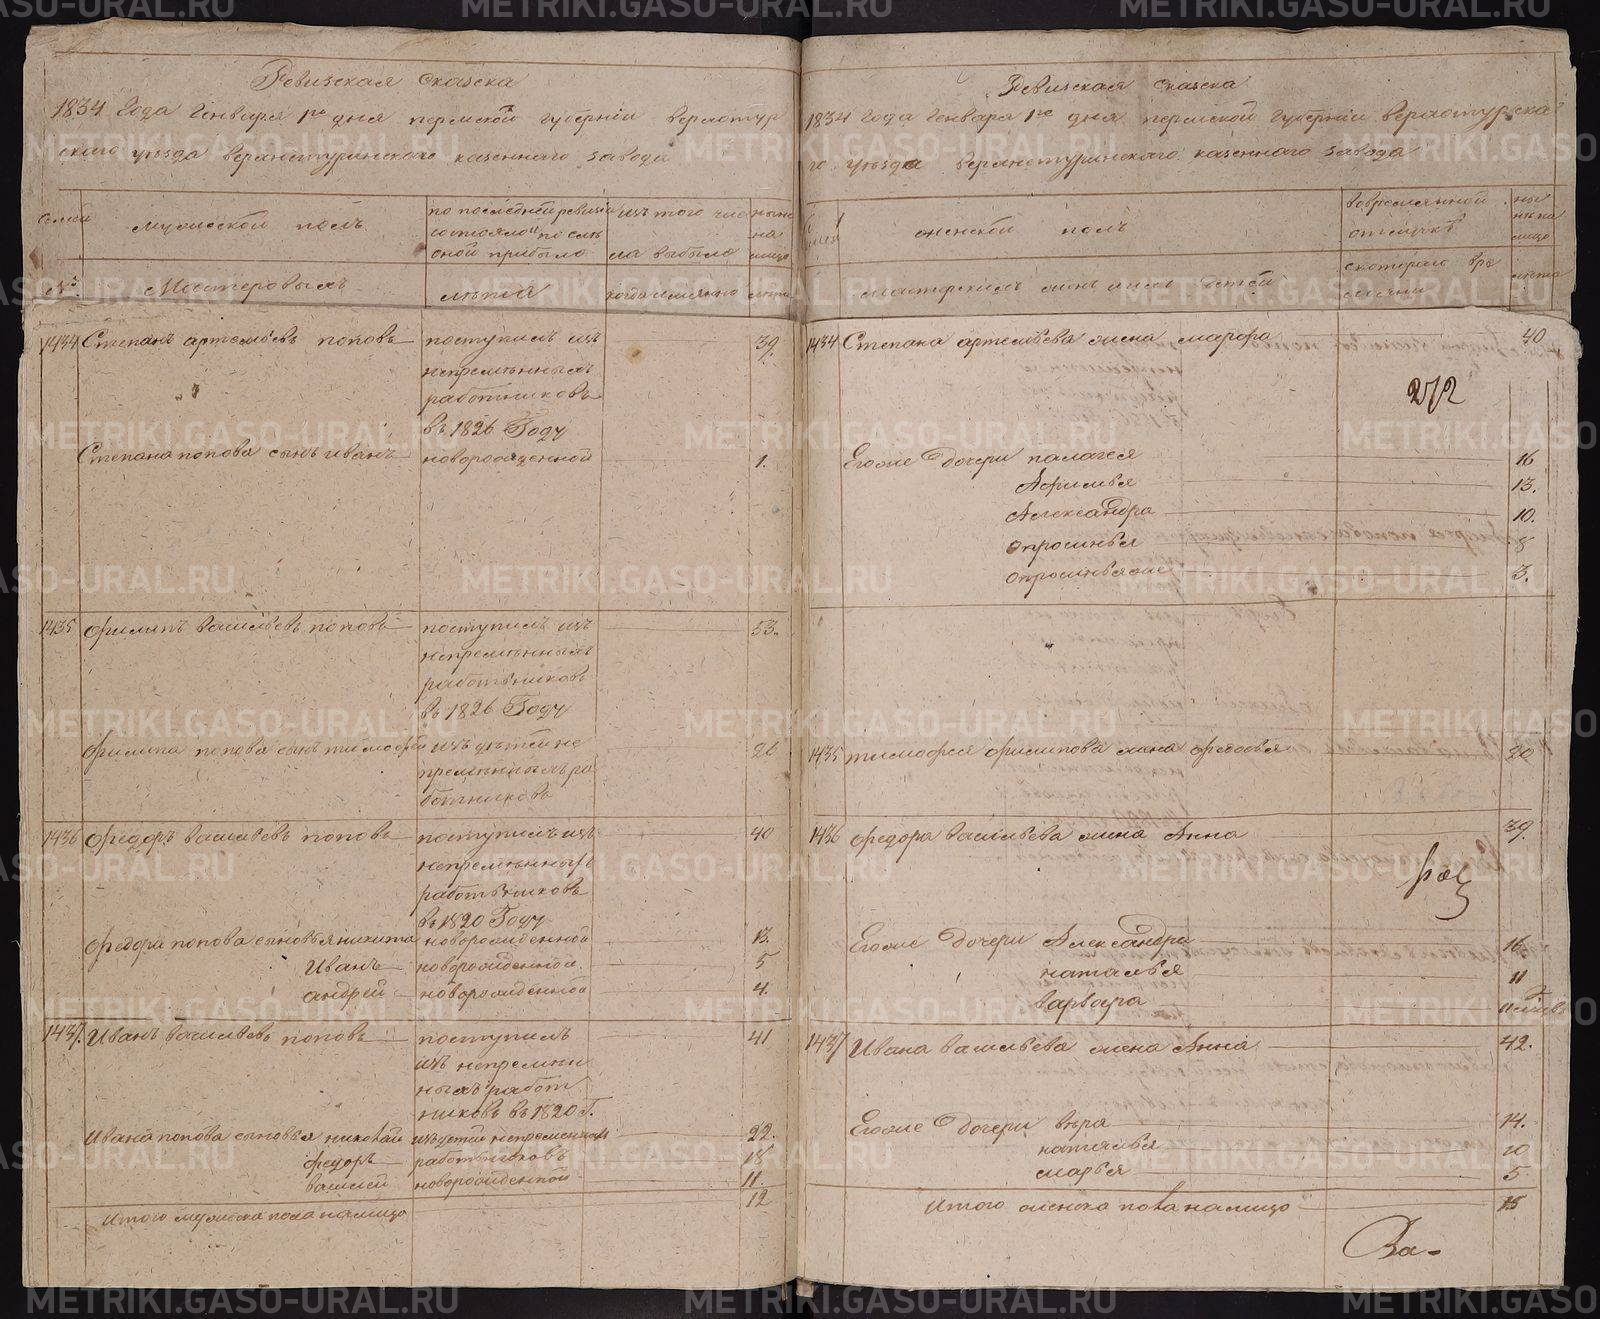 Ревизская сказска
1834 Года Генваря 1го дня пермской губернiи верхотур
скаго уезда верхнетуринскаго казенного завода
Семьи
мужеской полъ
по последней ревизiи
состояло и после
оной прибыло
изъ того чис
ла выбыло
ныне
на
лицо
№
Мастеровыхъ
лета
когда имянно
лета
1434 Степанъ артемьевъ поповъ
поступилъ изъ
непременныхъ
работниковъ
въ 1826 Году
39.
Степана попова сынъ иванъ
новорожденной
1.
1435 филипъ васильевъ поповъ
поступилъ изъ
непременныхъ
работниковъ
въ 1826 Году
53.
филипа попова сынъ тимофей
изъ детей не
пременныхъ ра
ботниковъ
1436 федоръ васильевъ поповъ
поступилъ изъ
непременныхъ
работниковъ
въ 1820 Году
40
федора попова сыновья никита
новорожденной
13.
Иванъ
новорожденной
5
андрей
новорожденной
4.
1437. Иванъ васильевъ поповъ
поступилъ
изъ непремен
ныхъ работ
никовъ въ 1820 Г.
41
Ивана попова сыновья николай
изъ детей непременныхъ
22.
федоръ
работниковъ
василей
новорожденной
11.
Итого мужеска пола налицо
12
Ревизская сказска
1834 Года Генваря 1го дня пермской губернiи верхотурска
го уезда верхнетуринскаго казенного завода
женской полъ
во временной
отлучке
ны
не на
лицо
мастерскихъ женъ ихъ детей
с котораго вре
мяни
лета
1434 Степана артемьева жена марфа
40
272
Егоже дочери палагея
16
Афимья
13.
Александра
10.
опросинья
8
опросинья же
3.
1435 тимофея филипова жена федосья
20
1436 федора васильева жена Анна
39.
Егоже дочери Александра
16.
наталья
11
варвара
1437 Ивана васильева жена Анна
42.
Егоже дочери вера
14.
наталья
10
марья
5
Итого женска пола налицо
15
За-